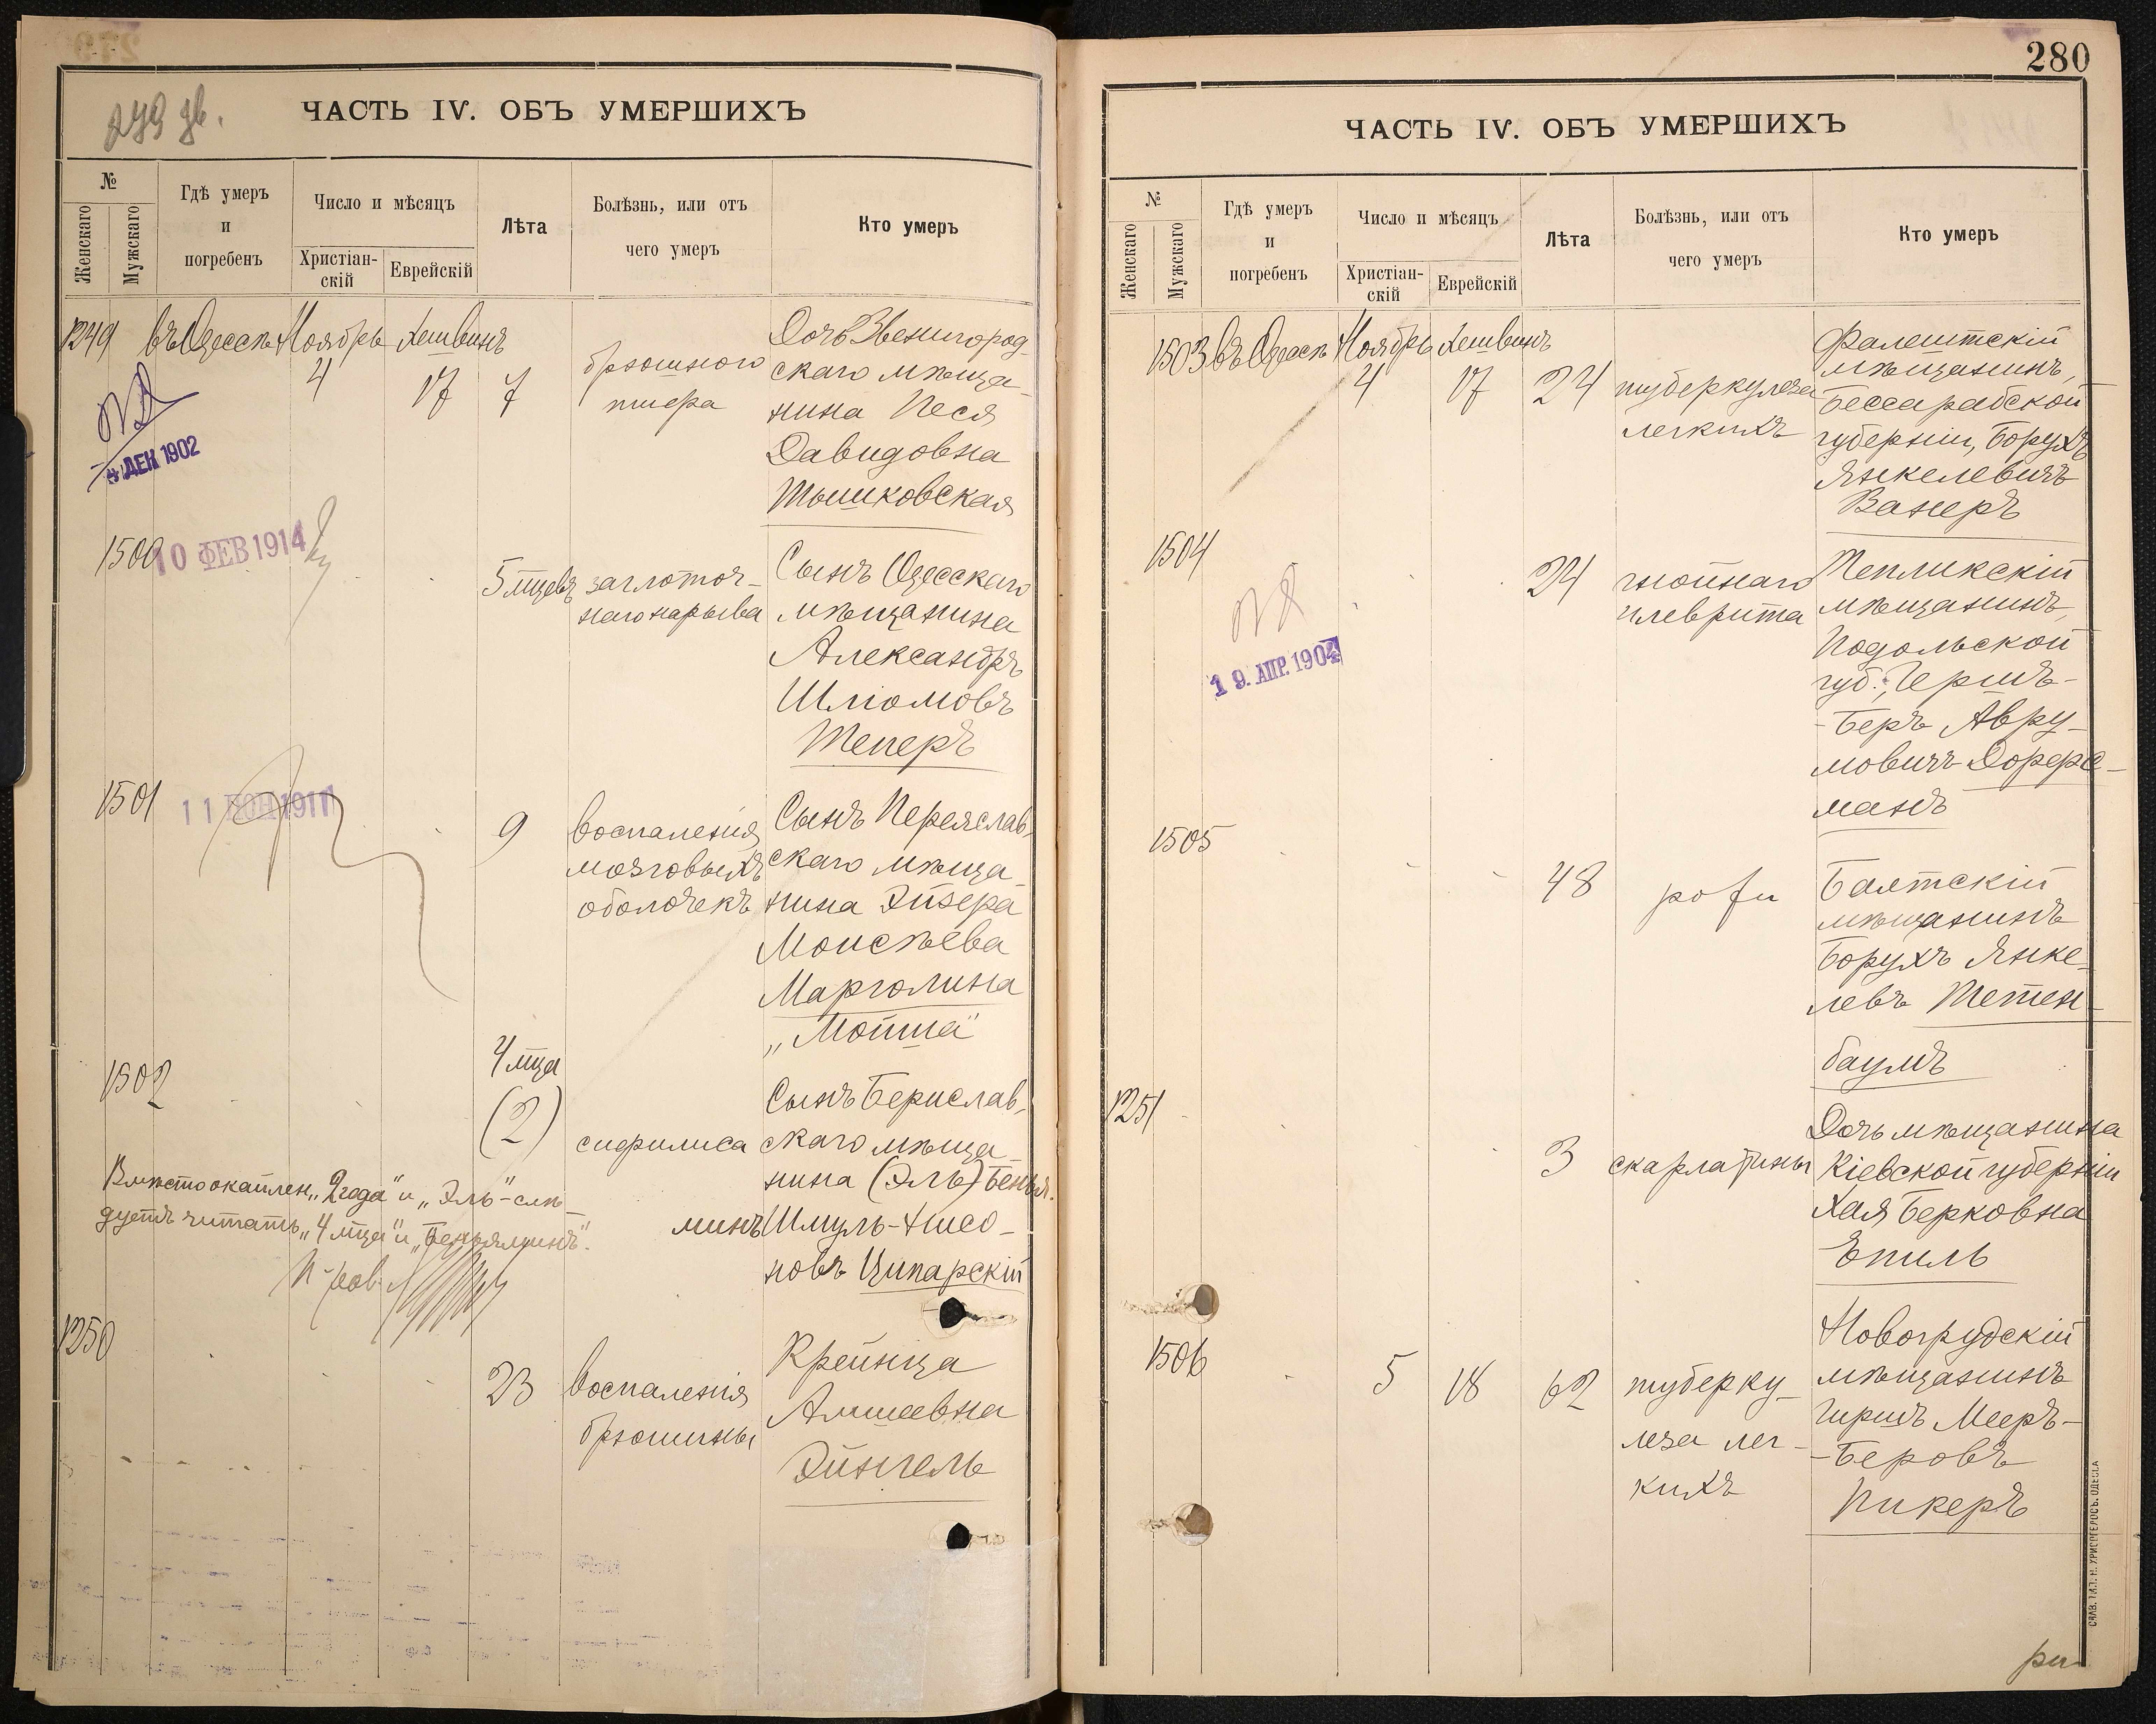 ЧАСТЬ IV. ОБЪ УМЕРШИХЪ
№
Женскаго
Мужскаго
Гдѣ умеръ
и
погребенъ
Число и мѣсяцъ
Христіан-
скій
Еврейскій
Лѣта
Болѣзнь, или отъ
чего умеръ
Кто умеръ
1249 въ Одессѣ Ноябрь Хешвинъ
4 17 7
брюшного
тифа
Дочь Звенигород-
скаго мѣща-
нина Песя
Давидовна
Тышковская
ДЕК 1902
1500
10 ФЕВ 1914
5 мцевъ заглоточ-
наго нарыва
Сынъ Одесскаго
мѣщанина
Александръ
Шлiомовъ
Теперъ
1501
9 воспаленія
мозговыхъ
оболочекъ
Сынъ Переяслав-
скаго мѣща-
нина Эйзера
Моисѣева
Марголина
„Мойша"
1502
4 мца
(2) сифилиса
Сынъ Бериславъ-
скаго мѣща-
нина (Эль) Беньяминъ
Шмуль-Нисо-
новъ Ципарскій
Вмѣсто окаймлен. „2 года" и „Эль" - слѣ-
дуетъ читать „4 мца" и „Беньяминъ".
1250
23 воспаленія
брюшины
Крейнца
Амшеевна
Эйнгель
280
ЧАСТЬ IV. ОБЪ УМЕРШИХЪ
№
Женскаго
Мужскаго
Гдѣ умеръ
и
погребенъ
Число и мѣсяцъ
Христіан-
скій
Еврейскій
Лѣта
Болѣзнь, или отъ
чего умеръ
Кто умеръ
1503 въ Одессѣ Ноябрь Хешвинъ
4 17 24 туберкулеза
легкихъ
Фалештскій
мѣщанинъ,
Бессарабской
губерніи, Борухъ
Янкелевичъ
Ванеръ
1504
19. АПР. 1904
24 гнойнаго
плеврита
Тепликскій
мѣщанинъ,
Подольской
губ., Гершъ-
-Беръ Авру-
мовичъ Дорфс-
манъ
1505
48 рожи
Балтскій
мѣщанинъ
Борухъ Янке-
левъ Тетен-
баумъ
1251
3 скарлатины
Дочь мѣщанина
Кіевской губерніи
Хая Берковна
Эпиль
1506
5 18 62 туберку-
леза лег-
кихъ
Новогрудскій
мѣщанинъ
Гиршъ Мееръ-
-Беровъ
Пикеръ
СЛАВ. ТИП. Н. ХРИСГЕРОСЪ. ОДЕССА